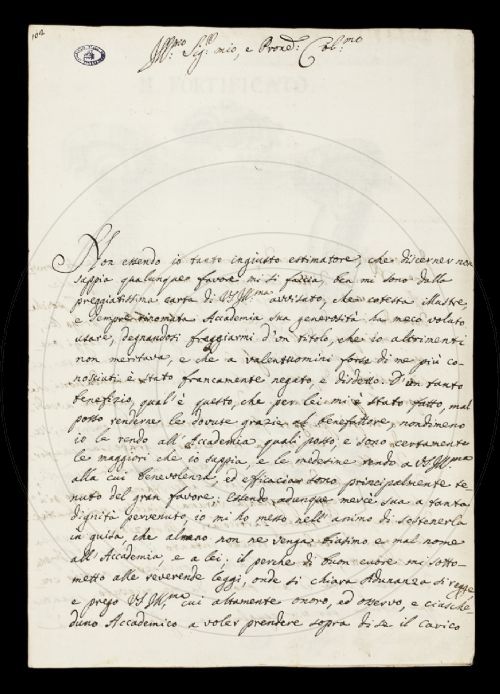 104
Ill:mo Sig:r mio, e Pron: Col:mo
Non essendo io tanto ingiusto estimatore, che discerner non
sappia qualunque favore mi si faccia, ben mi sono dalla
preggiatissima carta di VS Ill:ma avvisato, che cotesta illustre,
e sempre rinomata Accademia sua generosità ha meco voluto
usare, degnandosi freggiarmi d'un titolo, che io altrimenti
non meritava, e che a valentuomini forse di me più co-
nosciuti è stato francamente negato, e disdetto. D'un tanto
benefizio, qual'è questo, che per lei mi è stato fatto, mal
posso renderne le dovute grazie al benefattore, nondimeno
io le rendo all'Accademia quali posso, e sono certamente
le maggiori che io sappia, e le medesime rendo a VS Ill:ma
alla cui benevolenza, ed efficacia sono principalmente te-
nuto del gran favore; Essendo adunque mercè sua a tanta
dignità pervenuto, io mi ho messo nell'animo di sostenerla
in guisa, che almano non ne venga biasimo e mal nome
all'Accademia, e a lei; il perche di buon cuore mi sotto-
metto alle reverende leggi, onde sì chiara Adunanza si regge
e prego VS Ill:ma, cui altamente onoro, ed osservo, e ciasche-
duno Accademico a voler prendere sopra di se il carico